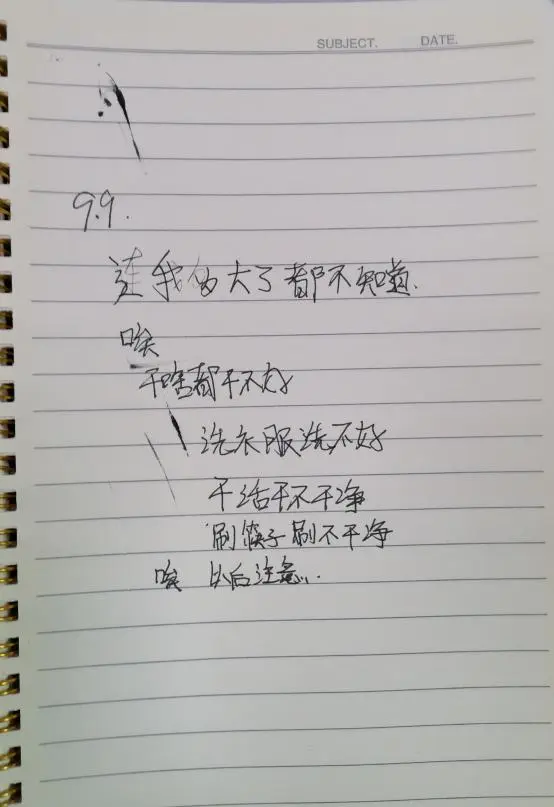 SUBJECT. DATE.
9.9.
连我的大了都不知道.
唉
干啥都干不好
洗衣服洗不好
干活干不干净
刷筷子刷不干净
唉 以后注意...